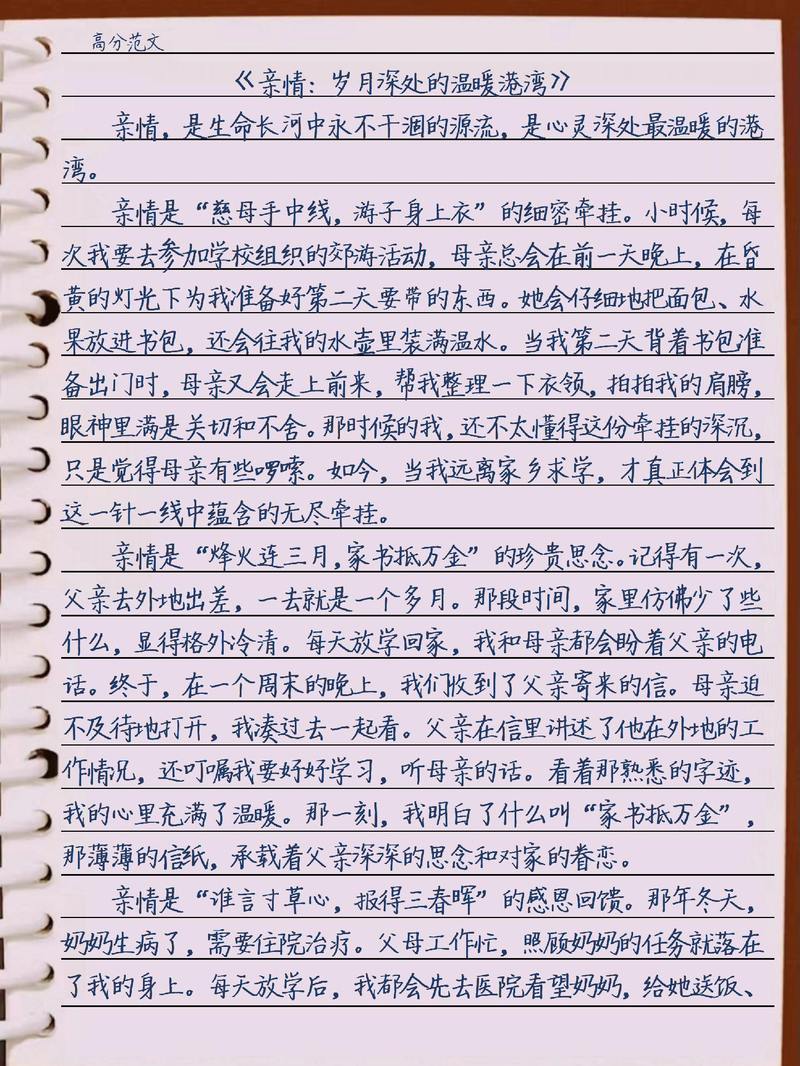 高分范文
《亲情：岁月深处的温暖港湾》
亲情，是生命长河中永不干涸的源流，是心灵深处最温暖的港
湾。
亲情是“慈母手中线，游子身上衣”的细密牵挂。小时候，每
次我要去参加学校组织的郊游活动，母亲总会在前一天晚上，在昏
黄的灯光下为我准备好第二天要带的东西。她会仔细地把面包、水
果放进书包，还会往我的水壶里装满温水。当我第二天背着书包准
备出门时，母亲又会走上前来，帮我整理一下衣领，拍拍我的肩膀，
眼神里满是关切和不舍。那时候的我，还不太懂得这份牵挂的深沉，
只是觉得母亲有些啰嗦。如今，当我远离家乡求学，才真正体会到
这一针一线中蕴含的无尽牵挂。
亲情是“烽火连三月，家书抵万金”的珍贵思念。记得有一次，
父亲去外地出差，一去就是一个多月。那段时间，家里仿佛少了些
什么，显得格外冷清。每天放学回家，我和母亲都会盼着父亲的电
话。终于，在一个周末的晚上，我们收到了父亲寄来的信。母亲迫
不及待地打开，我凑过去一起看。父亲在信里讲述了他在外地的工
作情况，还叮嘱我要好好学习，听母亲的话。看着那熟悉的字迹，
我的心里充满了温暖。那一刻，我明白了什么叫“家书抵万金”，
那薄薄的信纸，承载着父亲深深的思念和对家的眷恋。
亲情是“谁言寸草心，报得三春晖”的感恩回馈。那年冬天，
奶奶生病了，需要住院治疗。父母工作忙，照顾奶奶的任务就落在
了我的身上。每天放学后，我都会先去医院看望奶奶，给她送饭、